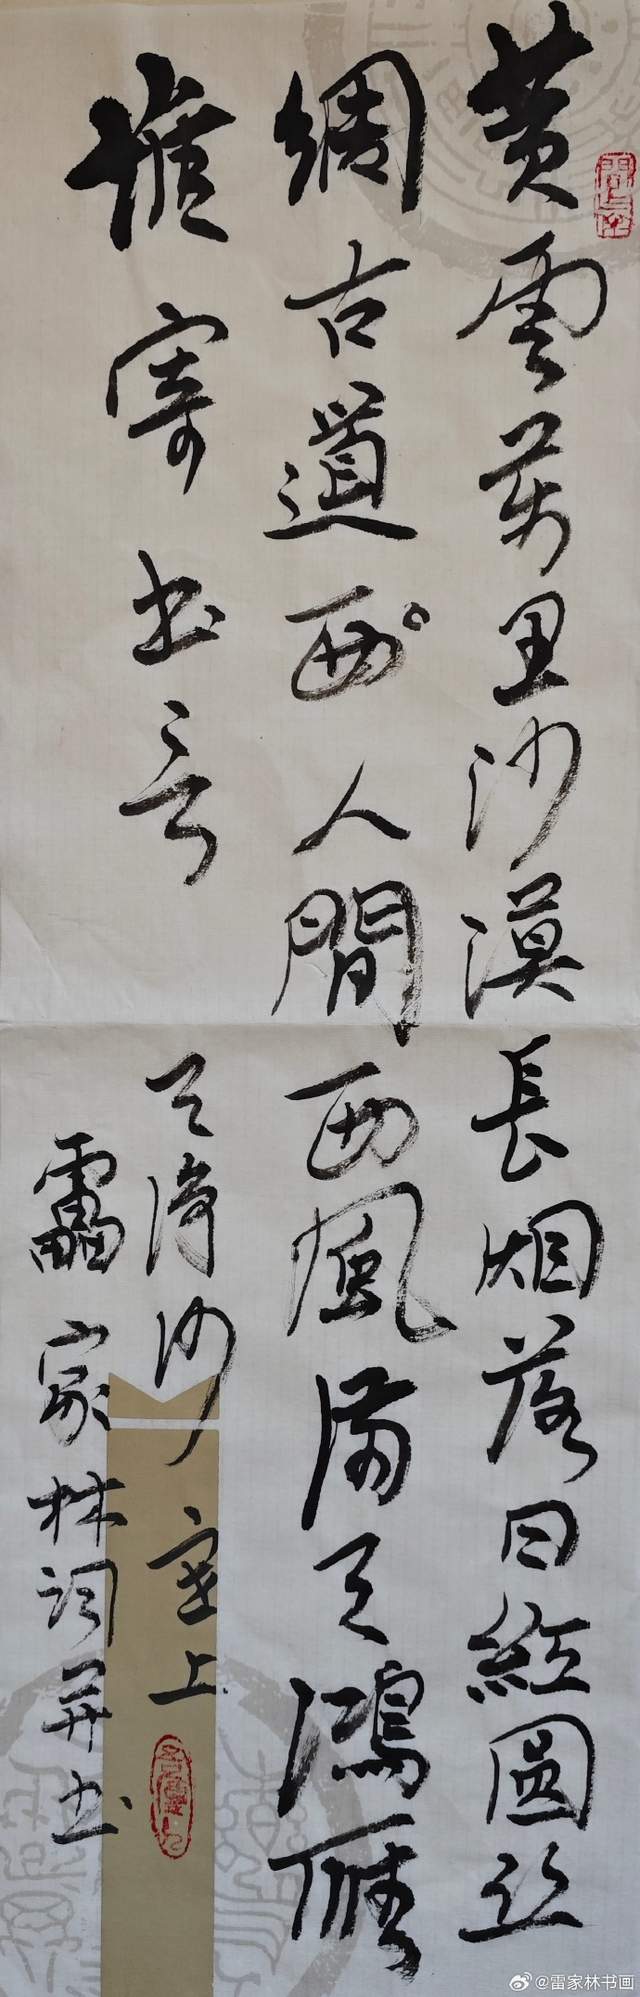 黄雲萬里沙漠長烟落日紅圓丝
綢古道西人間西風满天鴻雁
誰寄书言
天淨沙 塞上
雷家林词并书
@雷家林书画